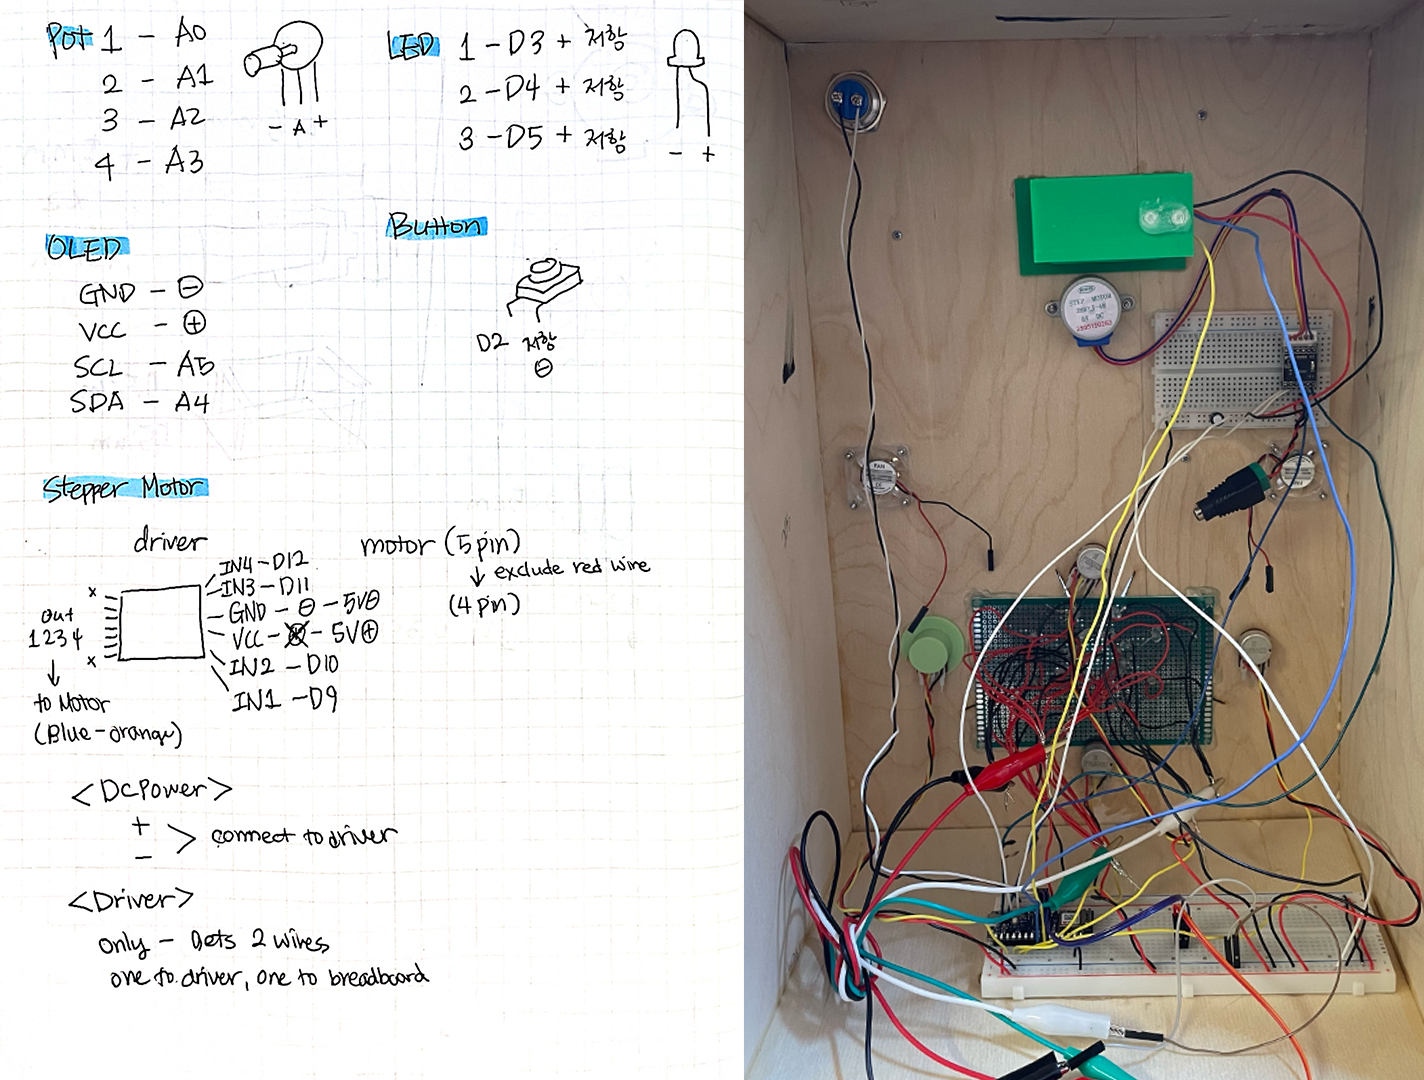 Pot 1 - A0
2 - A1
3 - A2
4 - A3
- A +
LED 1 - D3 + 저항
2 - D4 + 저항
3 - D5 + 저항
- +
OLED
GND - ⊖
VCC - ⊕
SCL - A5
SDA - A4
Button
D2 저항
⊖
Stepper Motor
driver
IN4 - D12
IN3 - D11
GND - ⊖ - 5V⊖
VCC - - 5V⊕
IN2 - D10
IN1 - D9
x
out
1 2 3 4
x
to Motor
(Blue - orange)
motor (5 pin)
↓ exclude red wire
(4 pin)
<DC Power>
+
-
> connect to driver
<Driver>
only - Gets 2 wires,
one to driver, one to breadboard
STEP MOTOR
5V DC
FAN